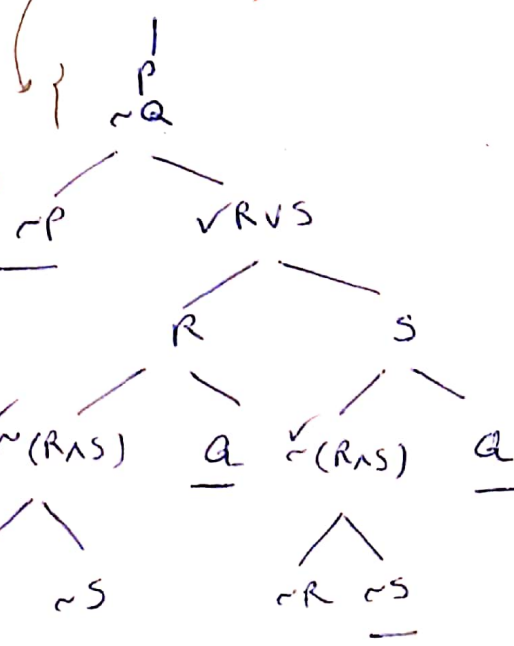 P
~Q
~P ✓R∨S
R S
~(R∧S) Q ✓~(R∧S) Q
~S ~R ~S